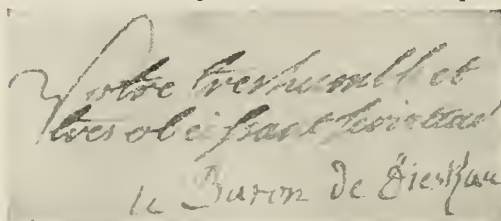 Votre treshumble et
tres obeissant serviteur
le Baron de Dieskau